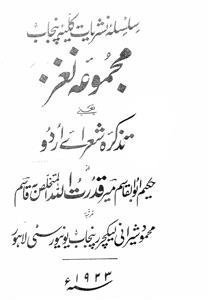 سلسلہ نشریات کلیہ پنجاب
مجموعۂ نغز
یعنی
تذکرۂ شعراے اردو
حکیم ابوالقاسم میر قدرت اللہ المتخلص بہ قاسم
مرتبہ
محمود شیرانی لیکچرر پنجاب یونیورسٹی لاہور
۱۹۲۳ء